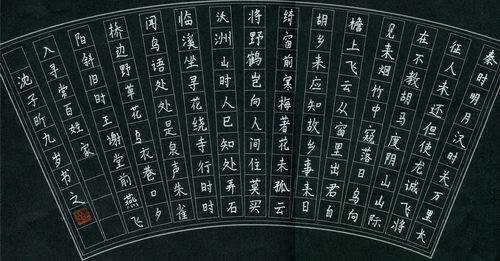 秦时明月汉时关万里长
征人未还但使龙诚飞将
在不教胡马度阴山山际
见来烟竹中窥落日鸟向
檐上飞云从窗里出君自
胡乡来应知故乡事来日
绮窗前寒梅著花未孤云
将野鹤岂向人间住莫买
沃洲山时人已知处弄石
临溪坐寻花绕寺行时时
闻鸟语处处是泉声朱雀
桥边野草花乌衣巷口夕
阳斜旧时王谢堂前燕飞
入寻常百姓家
沈子昕九岁书之